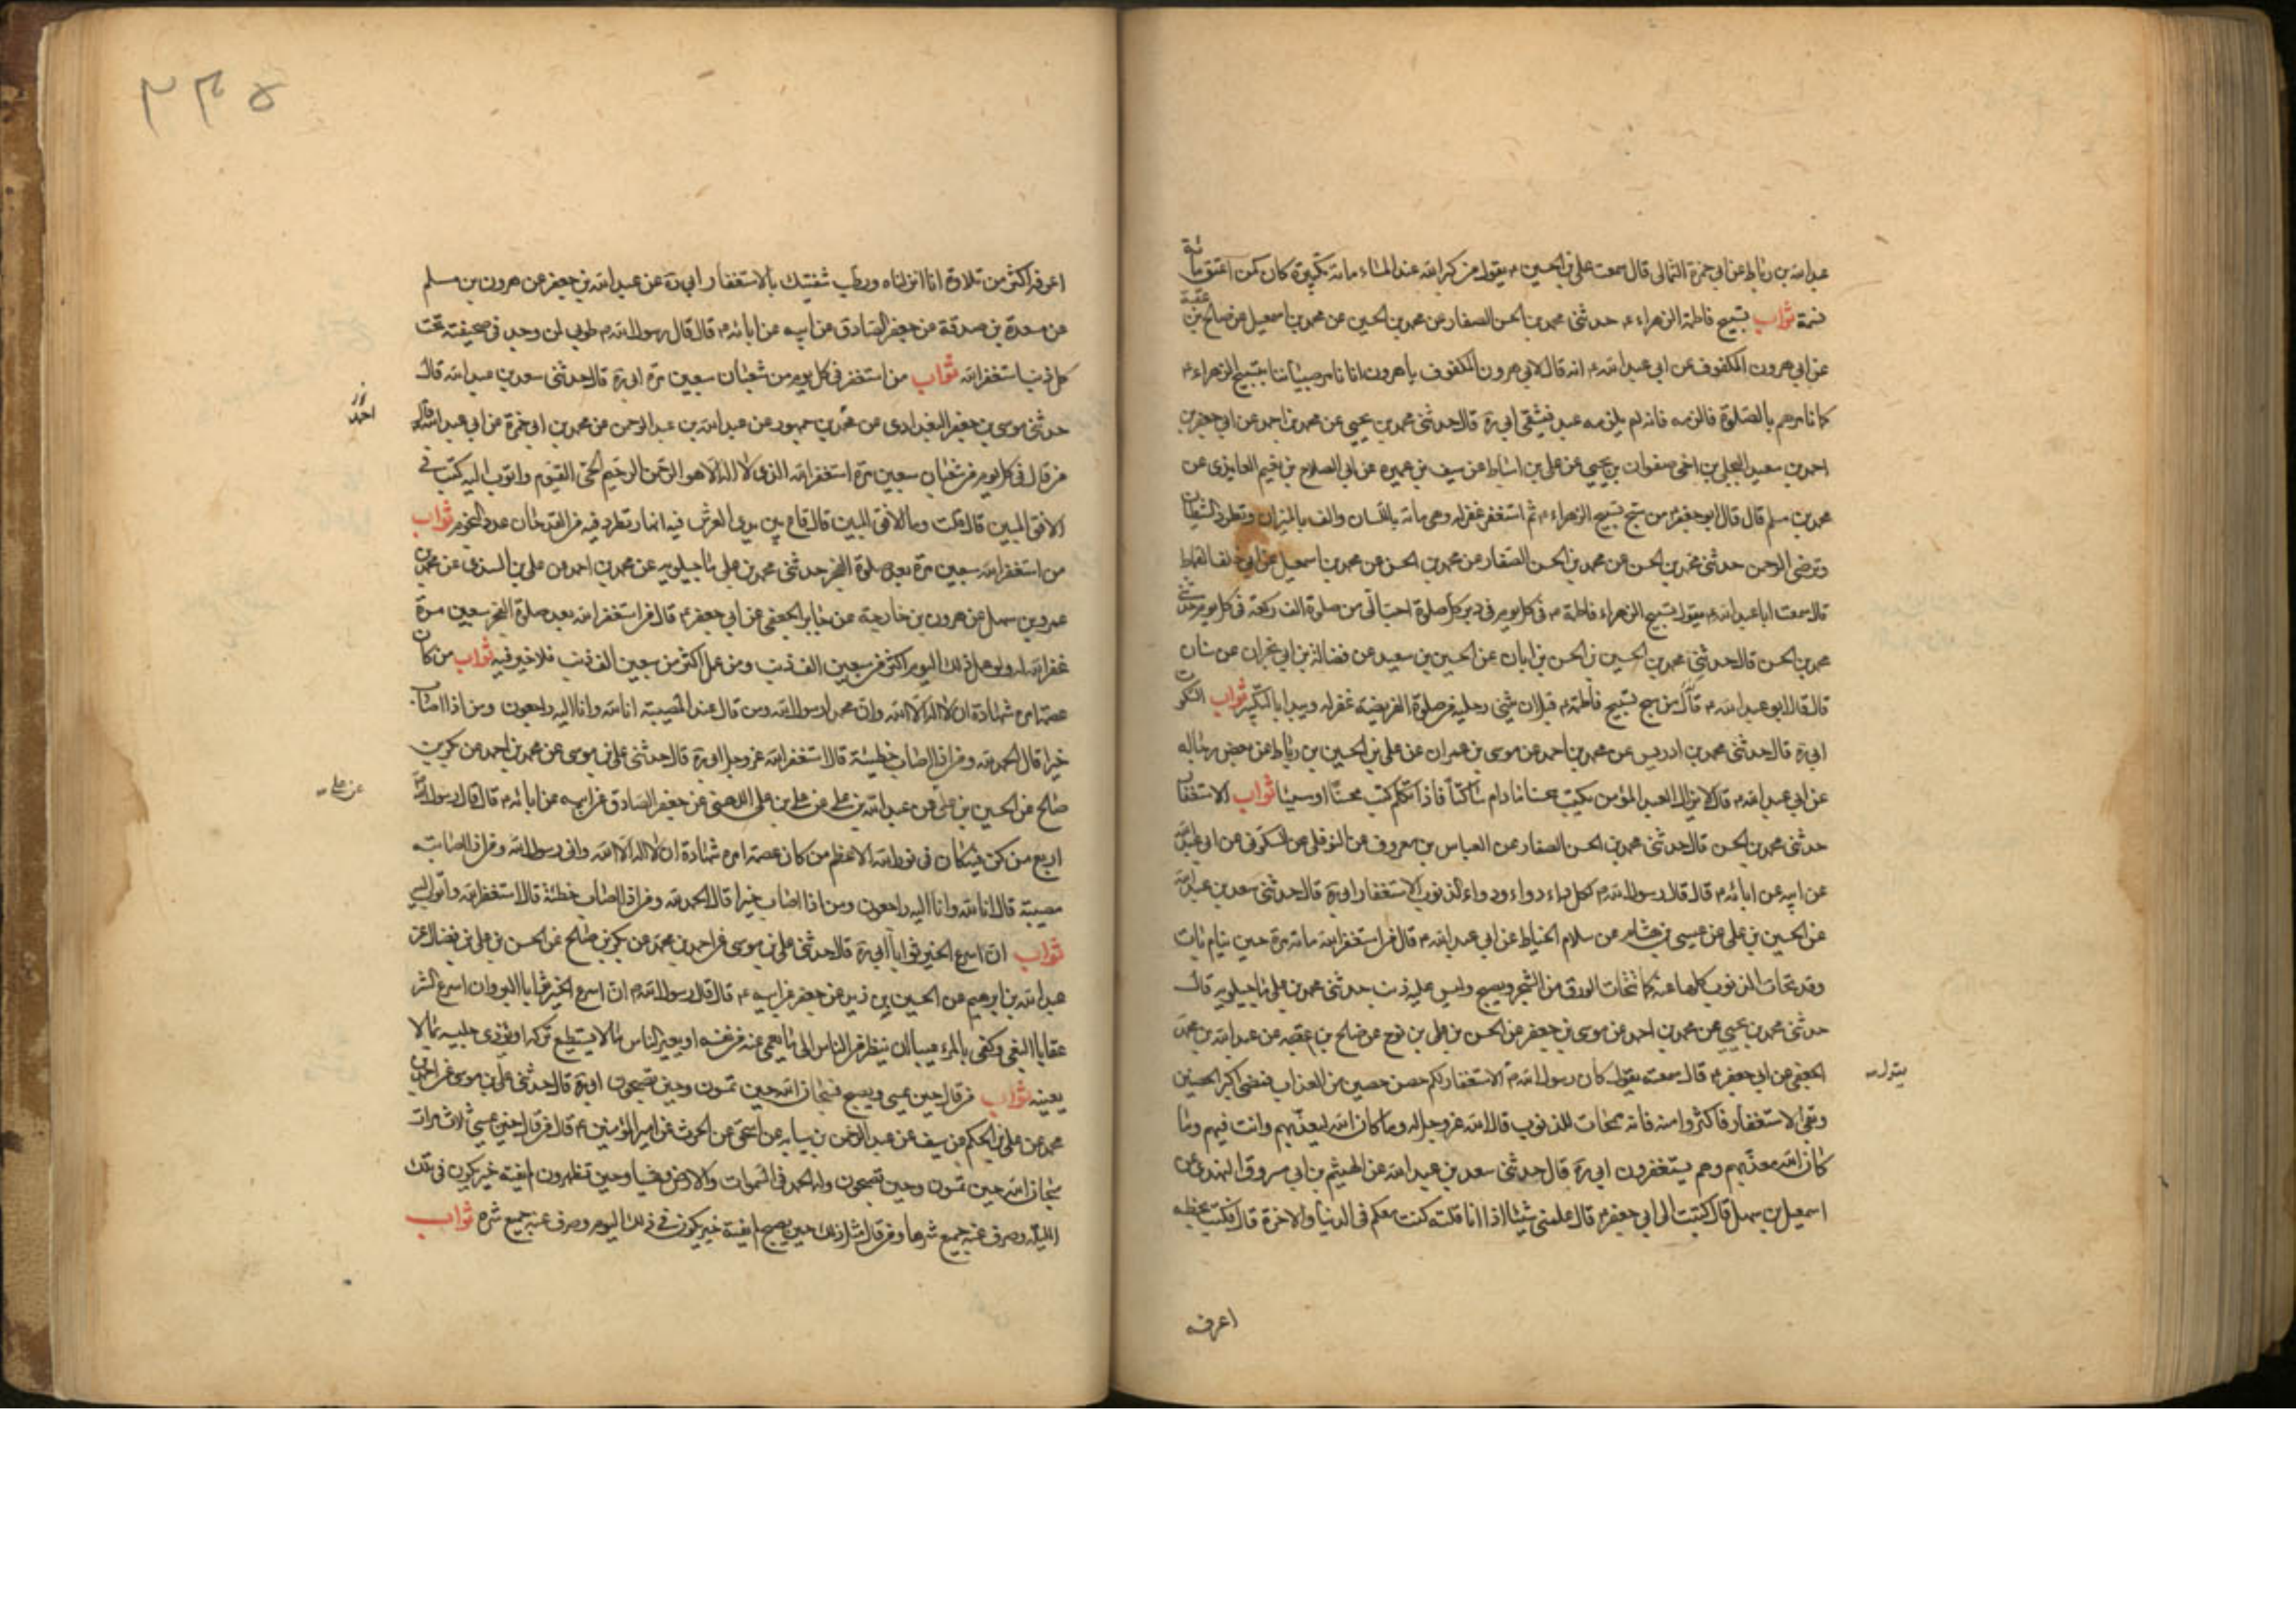 عبد الله بن رباط عن ابي حمزة الثمالى قال سمعت على بن الحسين ع يقول من كبر الله عند المساء مائة تكبيرة كان كمن اعتق مائة
نسمة ثواب تسبيح فاطمة الزهراء ع حدثنى محمد بن الحسن الصفار عن محمد بن الحسين عن محمد بن اسمعيل عن صالح بن عقبة
عن ابي هرون المكفوف عن ابي عبد الله ع انه قال لابي هرون المكفوف يا هرون انا نامر صبياننا بتسبيح الزهراء ع
كما نامرهم بالصلوة فالزمه فانه لم يلزمه عبد فيشقى ابي ره قال حدثنى محمد بن يحيى عن محمد بن احمد عن ابي جعفر بن
احمد بن سعيد البجلى بن اخى صفوان بن يحيى عن على بن اسباط عن سيف بن عميره عن ابي الصلاح بن نعيم العايذى عن
محمد بن مسلم قال قال ابو جعفر ع من سبح تسبيح الزهراء ع ثم استغفر غفر له وهى مائة باللسان والف بالميزان وتطرد الشيطان
وترضى الرحمن حدثنى محمد بن الحسن عن محمد بن الحسن الصفار عن محمد بن الحسن عن محمد بن اسمعيل عن ابي خلف القماط
قال سمعت ابا عبد الله ع يقول تسبيح الزهراء فاطمة ع فى كل يوم فى دبر كل صلوة احب الى من صلوة الف ركعة فى كل يوم حدثنى
محمد بن الحسن قال حدثنى محمد بن الحسين بن الحسن بن ابان عن الحسين بن سعيد عن فضالة بن ابي نجران عن سنان
قال قال ابو عبد الله ع قال من سبح تسبيح فاطمة ع قبل ان يثنى رجليه من صلوة الفريضة غفر له ويبدا بالتكبير ثواب السكوت
ابي ره قال حدثنى محمد بن ادريس عن محمد بن احمد عن موسى بن عمران عن على بن الحسين بن رباط عن بعض رجاله
عن ابي عبد الله ع قال لا يزال العبد المؤمن يكتب محسنا ما دام ساكتا فاذا تكلم كتب محسنا او مسيئا ثواب الاستغفار
حدثنى محمد بن الحسن قال حدثنى محمد بن الحسن الصفار عن العباس بن معروف عن النوفلى عن السكونى عن ابي عبد الله
عن ابيه عن ابائه ع قال قال رسول الله ص لكل داء دواء ودواء الذنوب الاستغفار ابي ره قال حدثنى سعد بن عبد الله
عن الحسين بن على عن عيسى بن هشام عن سلام الخياط عن ابي عبد الله ع قال من استغفر الله مائة مرة حين ينام بات
وقد تحات الذنوب كلها عنه كما تتحات الورق من الشجر ويصبح وليس عليه ذنب حدثنى محمد بن على ماجيلويه قال
حدثنى محمد بن يحيى عن محمد بن احمد عن موسى بن جعفر عن الحسن بن على بن نوح عن صالح بن عقبه عن عبد الله بن محمد
الجعفى عن ابي جعفر ع قال سمعته يقول كان رسول الله ص الاستغفار لكم حصن حصين من العذاب فمضى اكبر الحصنين
يقول
وبقى الاستغفار فاكثروا منه فانه ممحات للذنوب قال الله عز وجل له وما كان الله ليعذبهم وانت فيهم وما
كان الله معذبهم وهم يستغفرون ابي ره قال حدثنى سعد بن عبد الله عن الهيثم بن ابي مسروق النهدى عن
اسمعيل بن سهل قال كتبت الى ابي جعفر ع قال علمنى شيئا اذا انا قلته كنت معكم فى الدنيا والاخرة قال فكتب بخطه
اعرفه
٢٣٥
اعرفه اكثر من تلاوة انا انزلناه ورطب شفتيك بالاستغفار ابي ره عن عبد الله بن جعفر عن هرون بن مسلم
عن مسعدة بن صدقة عن جعفر الصادق عن ابيه عن ابائه ع قال قال رسول الله ص طوبى لمن وجد فى صحيفته تحت
كل ذنب استغفر الله ثواب من استغفر فى كل يوم من شعبان سبعين مرة ابي ره قال حدثنى سعد بن عبد الله قال
احمد
حدثنى موسى بن جعفر البغدادى عن محمد بن جمهور عن عبد الله بن عبد الرحمن عن محمد بن ابي حمزة عن ابي عبد الله ع قال
من قال فى كل يوم من شعبان سبعين مرة استغفر الله الذى لا اله الا هو الرحمن الرحيم الحى القيوم واتوب اليه كتب فى
الافق المبين قال قلت وما الافق المبين قال قاع بين يدى العرش فيه انهار تطرد فيه من القدحان عدد النجوم ثواب
من استغفر الله سبعين مرة بعد صلوة الفجر حدثنى محمد بن على ماجيلويه عن محمد بن احمد عن على بن السندى عن محمد بن
عمرو بن سهل عن هرون بن خارجة عن جابر الجعفى عن ابي جعفر ع قال من استغفر الله بعد صلوة الفجر سبعين مرة
غفر الله له ولو عمل ذلك اليوم اكثر من سبعين الف ذنب ومن عمل اكثر من سبعين الف ذنب فلا خير فيه ثواب من كان
عصمة امره شهادة ان لا اله الا الله وان محمدا رسول الله ومن قال عند المصيبة انا لله وانا اليه راجعون ومن اذا اصاب
خيرا قال الحمد لله ومن اذا اصاب خطيئة قال استغفر الله عز وجل ابي ره قال حدثنى على بن موسى عن محمد بن احمد عن بكر بن
عن على
صالح عن الحسين بن على عن عبد الله بن على عن على بن على اللهبى عن جعفر الصادق عن ابيه عن ابائه ع قال قال رسول الله ص
اربع من كن فيه كان فى نور الله الاعظم من كان عصمة امره شهادة ان لا اله الا الله وانى رسول الله ومن اذا اصابته
مصيبة قال انا لله وانا اليه راجعون ومن اذا اصاب خيرا قال الحمد لله ومن اذا اصاب خطئة قال استغفر الله واتوب اليه
ثواب ان اسرع الخير ثوابا ابي ره قال حدثنى على بن موسى عن احمد بن محمد عن بكر بن صالح عن الحسن بن على بن فضال عن
عبد الله بن ابرهيم عن الحسين بن زيد عن جعفر عن ابيه ع قال قال رسول الله ص ان اسرع الخير ثوابا البر وان اسرع الشر
عقابا البغى وكفى بالمرء عيبا ان ينظر من الناس الى ما يعمى عنه من نفسه او يعير الناس بما لا يستطيع تركه او يؤذى جليسه بما لا
يعينه ثواب من قال حين يمسى ويصبح فسبحان الله حين تمسون وحين تصبحون ابي ره قال حدثنى على بن موسى عن احمد بن
محمد عن على بن الحكم عن سيف عن عبد الرحمن بن سيابه عن اسحق عن الحرث عن امير المؤمنين ع قال من قال حين يمسى ثلاث مرات
سبحان الله حين تمسون وحين تصبحون وله الحمد فى السموات والارض وعشيا وحين تظهرون لم يفته خير يكون فى تلك
الليلة وصرف عنه جميع شرها ومن قال مثل ذلك حين يصبح لم يفته خير يكون فى ذلك اليوم وصرف عنه جميع شره ثواب